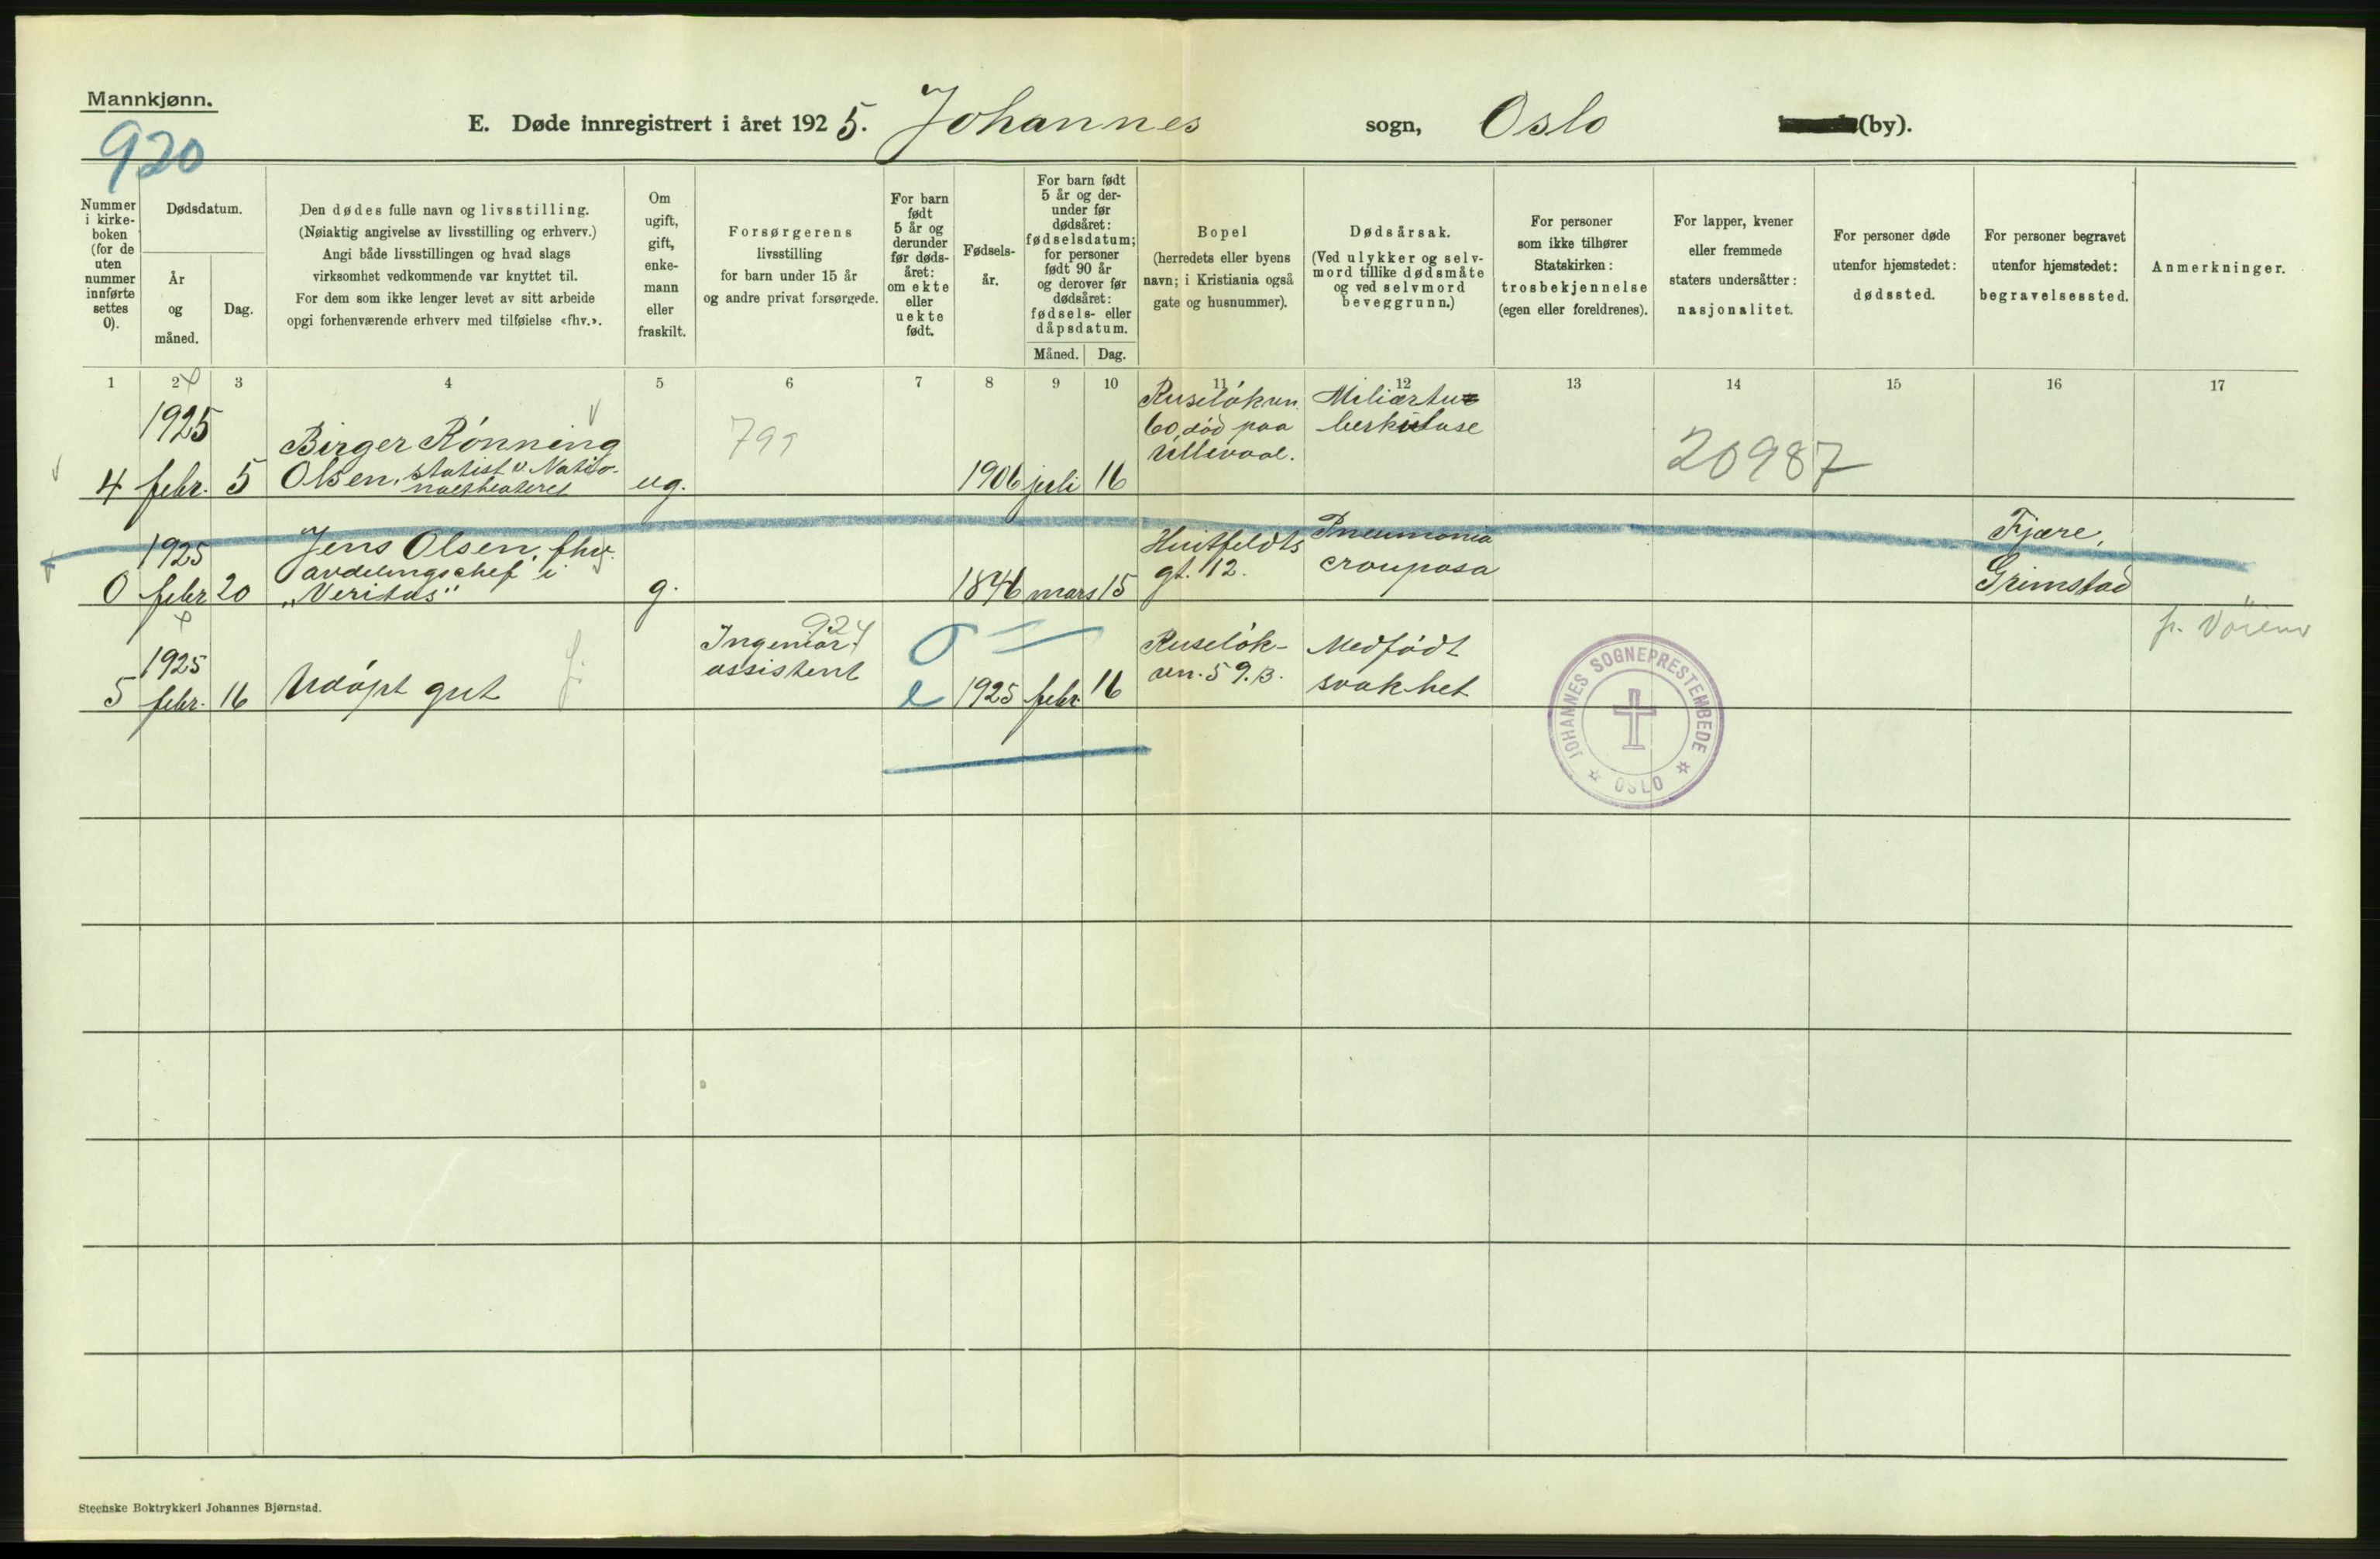 Mannkjønn.
920
E. Døde innregistrert i året 1925. Johannes sogn, Oslo (by).
Nummer
i kirke-
boken
(for de
uten
nummer
innførte
settes
0).
Dødsdatum.
År
og
måned.
Dag.
Den dødes fulle navn og livsstilling.
(Nøiaktig angivelse av livsstilling og erhverv.)
Angi både livsstillingen og hvad slags
virksomhet vedkommende var knyttet til.
For dem som ikke lenger levet av sitt arbeide
opgi forhenværende erhverv med tilføielse «fhv.».
Om
ugift,
gift,
enke-
mann
eller
fraskilt.
Forsørgerens
livsstilling
for barn under 15 år
og andre privat forsørgede.
For barn
født
5 år og
derunder
før døds-
året:
om ekte
eller
uekte
født.
Fødsels-
år.
For barn født
5 år og der-
under før
dødsåret:
fødselsdatum;
for personer
født 90 år
og derover før
dødsåret:
fødsels- eller
dåpsdatum.
Måned. Dag.
Bopel
(herredets eller byens
navn; i Kristiania også
gate og husnummer).
Dødsårsak.
(Ved ulykker og selv-
mord tillike dødsmåte
og ved selvmord
beveggrunn.)
For personer
som ikke tilhører
Statskirken:
trosbekjennelse
(egen eller foreldrenes).
For lapper, kvener
eller fremmede
staters undersåtter:
nasjonalitet.
For personer døde
utenfor hjemstedet:
dødssted.
For personer begravet
utenfor hjemstedet:
begravelsessted.
Anmerkninger.
1 2 3 4 5 6 7 8 9 10 11 12 13 14 15 16 17
1925
4 febr. 5
Birger Rønning
Olsen, statist v. Natio-
naltheateret
ug.
799
1906 juli 16
Ruseløkvn.
60, død paa
Ullevaal.
Miliærtu-
berkulose
20987
1925
0 febr 20
Jens Olsen, fhv.
avdelingschef i
"Veritas"
g.
1846 mars 15
Huitfeldts
gt. 12.
Pneumonia
crouposa
Fjære,
Grimstad
1925
5 febr. 16
Udøpt gut
924
Ingeniør-
assistent
e 1925 febr. 16
Ruseløk-
vn. 59.B.
Medfødt
svakhet
JOHANNES SOGNEPRESTEMBEDE
OSLO
Steenske Boktrykkeri Johannes Bjørnstad.